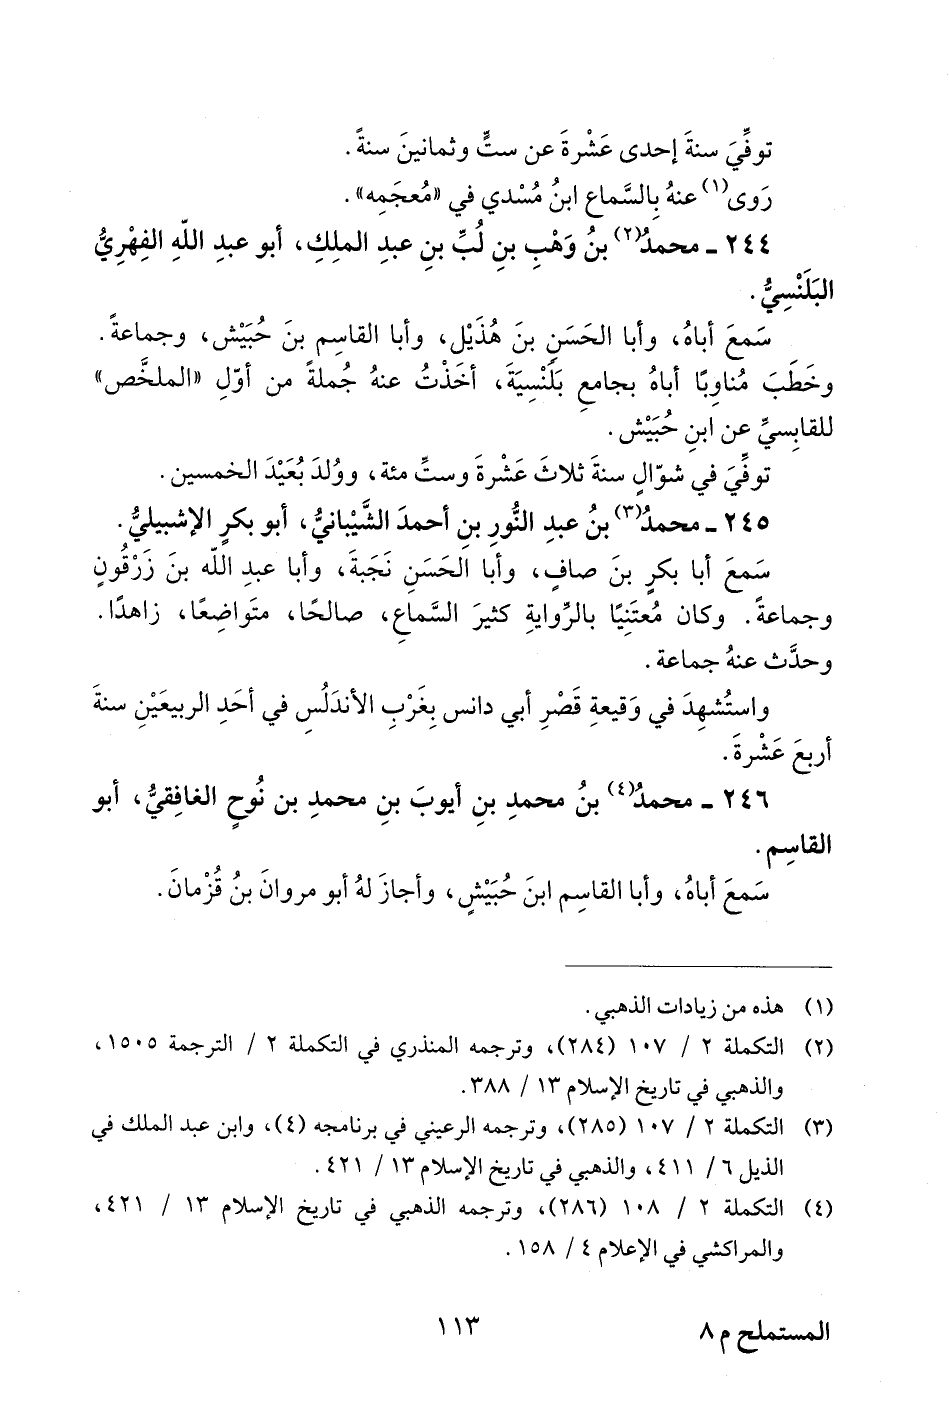 توفِّيَ سنةَ إحدى عَشْرةَ عن ستٍّ وثمانينَ سنةً.
رَوى(١) عنهُ بِالسَّماع ابنُ مُسْدي في «مُعجَمِه».
٢٤٤ ـ محمدُ(٢) بنُ وَهْبِ بنِ لُبِّ بنِ عبدِ الملِكِ، أبو عبد اللّهِ الفِهْرِيُّ
البَلَنْسِيُّ.
سَمعَ أباهُ، وأبا الحَسَنِ بنَ هُذَيْل، وأبا القاسِم بنَ حُبَيْش، وجماعةً.
وخَطَبَ مُناوِبًا أباهُ بجامعِ بَلَنْسِيَةَ، أخَذْتُ عنهُ جُملةً من أوّلِ «الملخَّص»
للقابِسيِّ عن ابنِ حُبَيْش.
توفِّيَ في شوّالٍ سنةَ ثلاثَ عَشْرةَ وستِّ مئة، ووُلدَ بُعَيْدَ الخمسين.
٢٤٥ ـ محمدُ(٣) بنُ عبدِ النُّورِ بنِ أحمدَ الشَّيْبانيُّ، أبو بكرٍ الإشبيليُّ.
سَمعَ أبا بكرٍ بنَ صافٍ، وأبا الحَسَنِ نَجَبةَ، وأبا عبدِ اللّه بنَ زَرْقُونٍ
وجماعةً. وكان مُعتَنِيًا بالرِّوايةِ كثيرَ السَّماع، صالحًا، متَواضِعًا، زاهدًا.
وحدَّث عنهُ جماعة.
واستُشهِدَ في وَقيعةِ قَصْرِ أبي دانس بِغَرْبِ الأندَلُسِ في أحَدِ الربيعَيْنِ سنةَ
أربعَ عَشْرةَ.
٢٤٦ ـ محمدُ(٤) بنُ محمدِ بنِ أيوبَ بنِ محمدِ بن نُوحٍ الغافِقيُّ، أبو
القاسِم.
سَمعَ أباهُ، وأبا القاسِمِ ابنَ حُبَيْشٍ، وأجازَ لهُ أبو مروانَ بنُ قُزْمانَ.
(١) هذه من زيادات الذهبي.
(٢) التكملة ٢ / ١٠٧ (٢٨٤)، وترجمه المنذري في التكملة ٢ / الترجمة ١٥٠٥،
والذهبي في تاريخ الإسلام ١٣ / ٣٨٨.
(٣) التكملة ٢ / ١٠٧ (٢٨٥)، وترجمه الرعيني في برنامجه (٤)، وابن عبد الملك في
الذيل ٦ / ٤١١، والذهبي في تاريخ الإسلام ١٣ / ٤٢١.
(٤) التكملة ٢ / ١٠٨ (٢٨٦)، وترجمه الذهبي في تاريخ الإسلام ١٣ / ٤٢١،
والمراكشي في الإعلام ٤ / ١٥٨.
المستملح م ٨
١١٣